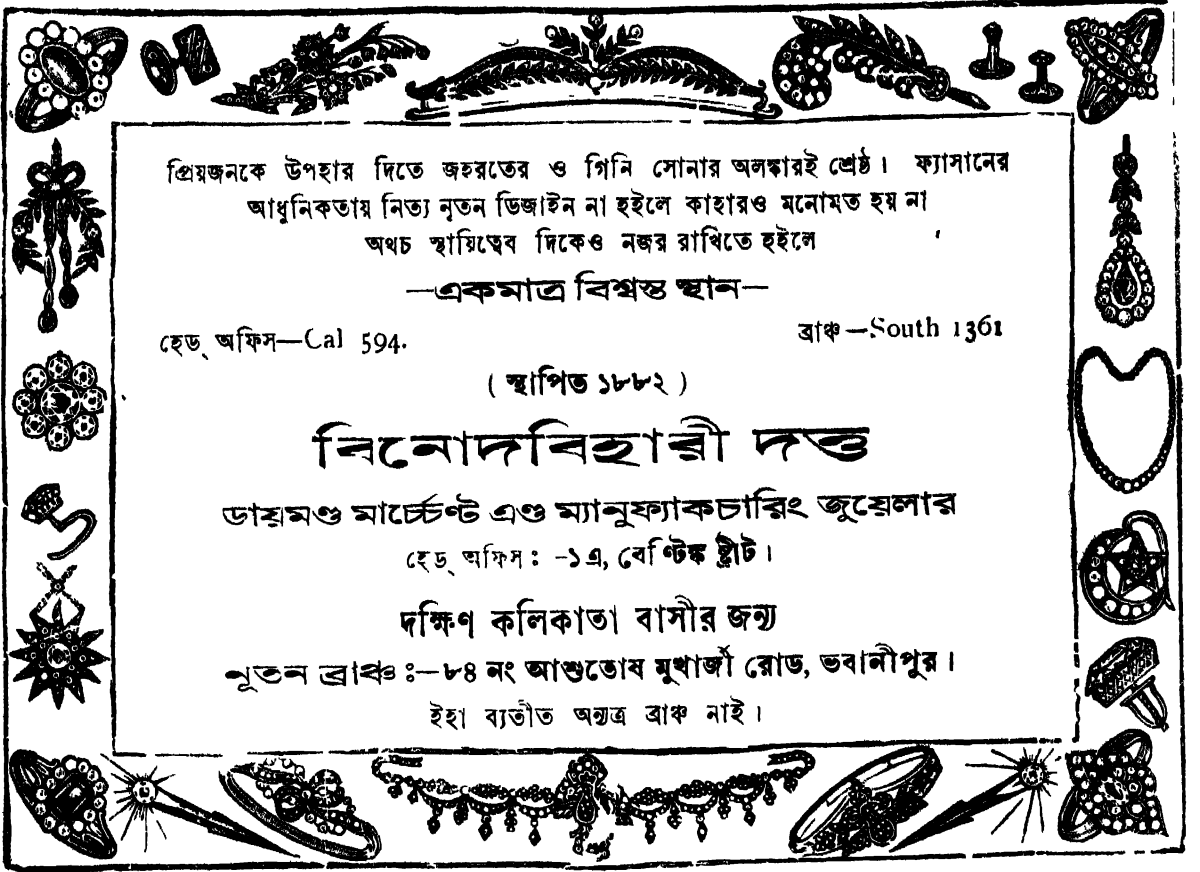 প্রিয়জনকে উপহার দিতে জহরতের ও গিনি সোনার অলঙ্কারই শ্রেষ্ঠ। ফ্যাসানের
আধুনিকতায় নিত্য নূতন ডিজাইন না হইলে কাহারও মনোমত হয় না
অথচ স্থায়িত্বেব দিকেও নজর রাখিতে হইলে
—একমাত্র বিশ্বস্ত স্থান—
হেড্ অফিস—Cal 594. ব্রাঞ্চ—South 1361
( স্থাপিত ১৮৮২ )
বিনোদবিহারী দত্ত
ডায়মণ্ড মার্চ্চেণ্ট এণ্ড ম্যানুফ্যাকচারিং জুয়েলার
হেড্ অফিস : -১এ, বেণ্টিঙ্ক ষ্ট্রীট।
দক্ষিণ কলিকাতা বাসীর জন্য
নূতন ব্রাঞ্চ ঃ—৮৪ নং আশুতোষ মুখার্জী রোড, ভবানীপুর।
ইহা ব্যতীত অন্যত্র ব্রাঞ্চ নাই।